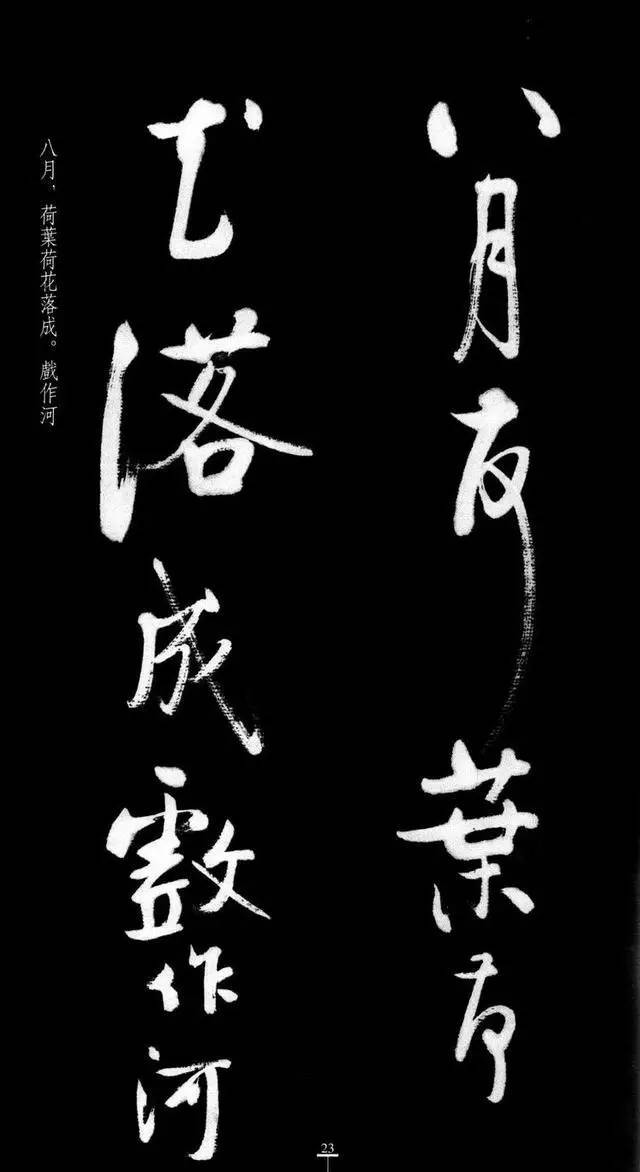 八月荷葉荷
花落成戲作河
八月、荷葉荷花落成。戲作河
23